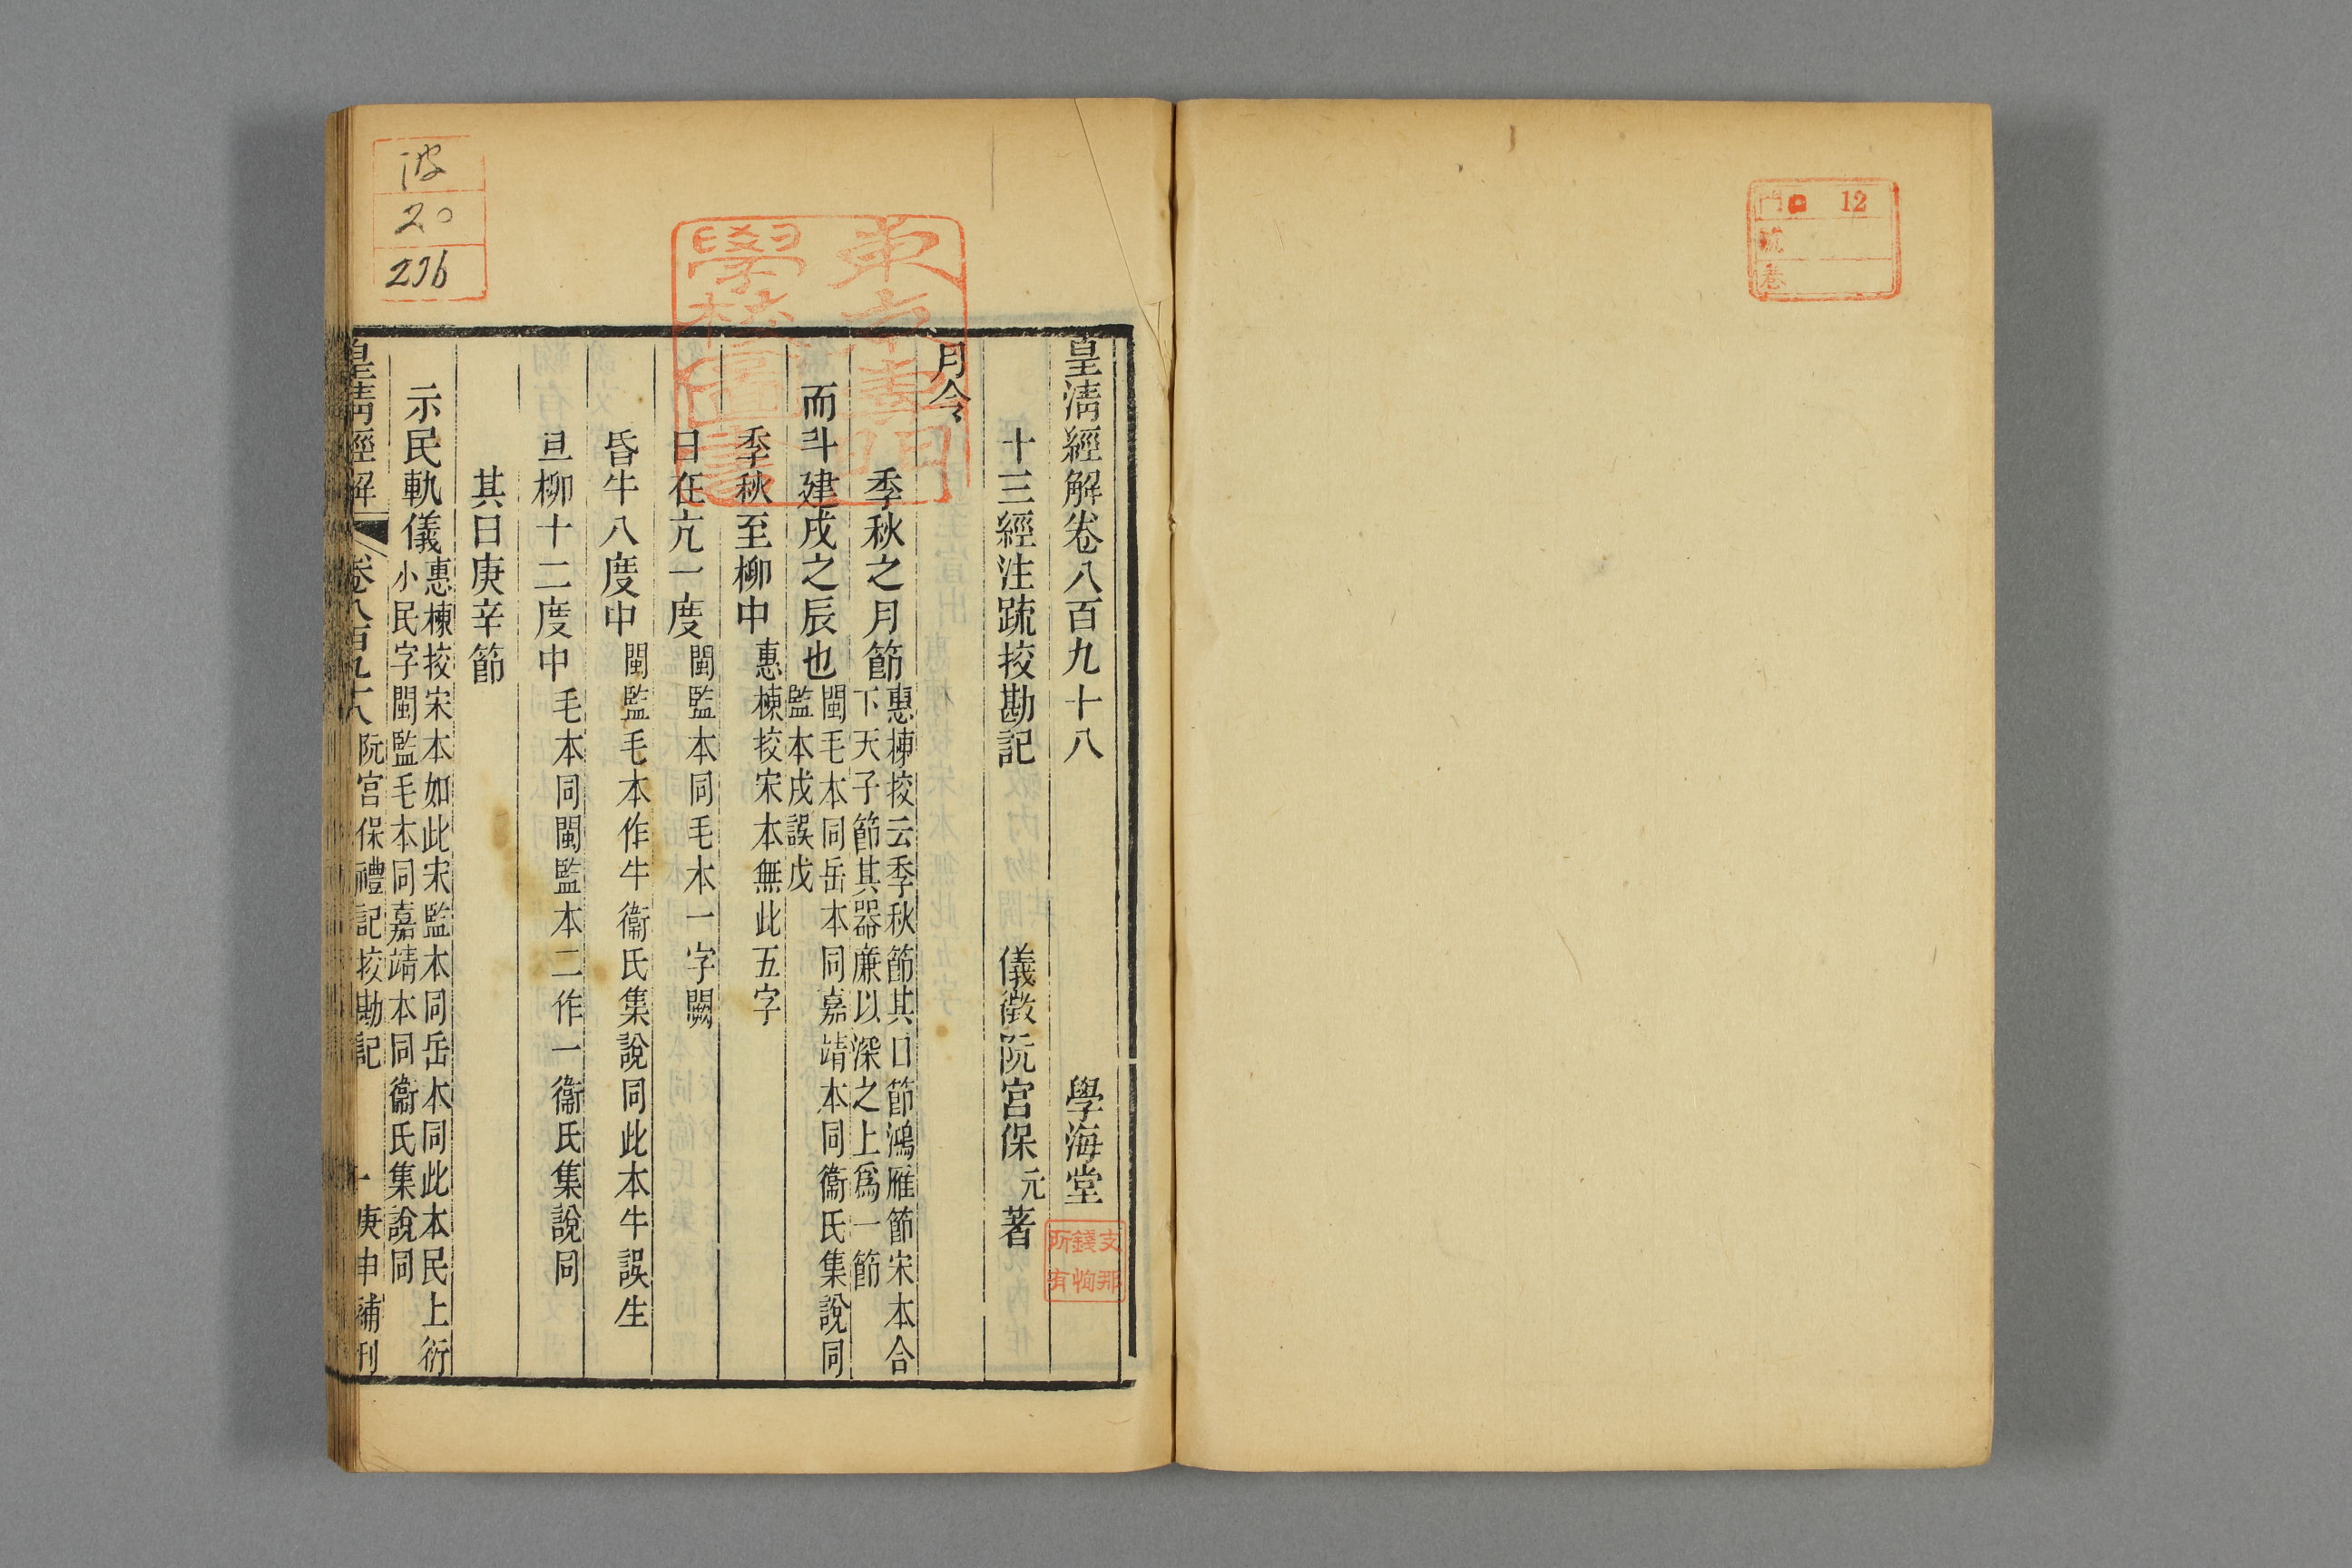 門 12
號
巷
皇清經解卷八百九十八 學海堂
支那
錢恂
所有
十三經注疏挍勘記 儀徵阮宮保元著
月令
季秋之月節惠棟挍云季秋節其日節鴻雁節宋本合
下天子節其器廉以深之上爲一節
而斗建戌之辰也閩毛本同岳本同嘉靖本同衞氏集說同
監本戌誤戊
季秋至柳中惠棟挍宋本無此五字
日在亢一度閩監本同毛本一字闕
昏牛八度中閩監毛本作牛衞氏集說同此本牛誤生
旦柳十二度中毛本同閩監本二作一衞氏集說同
其日庚辛節
示民軌儀惠棟挍宋本如此宋監本同岳本同此本民上衍
小民字閩監毛本同嘉靖本同衞氏集說同
皇清經解 卷八百九十八 阮宮保禮記挍勘記 一 庚申補刊
東京專門
學校圖書
波
20
276